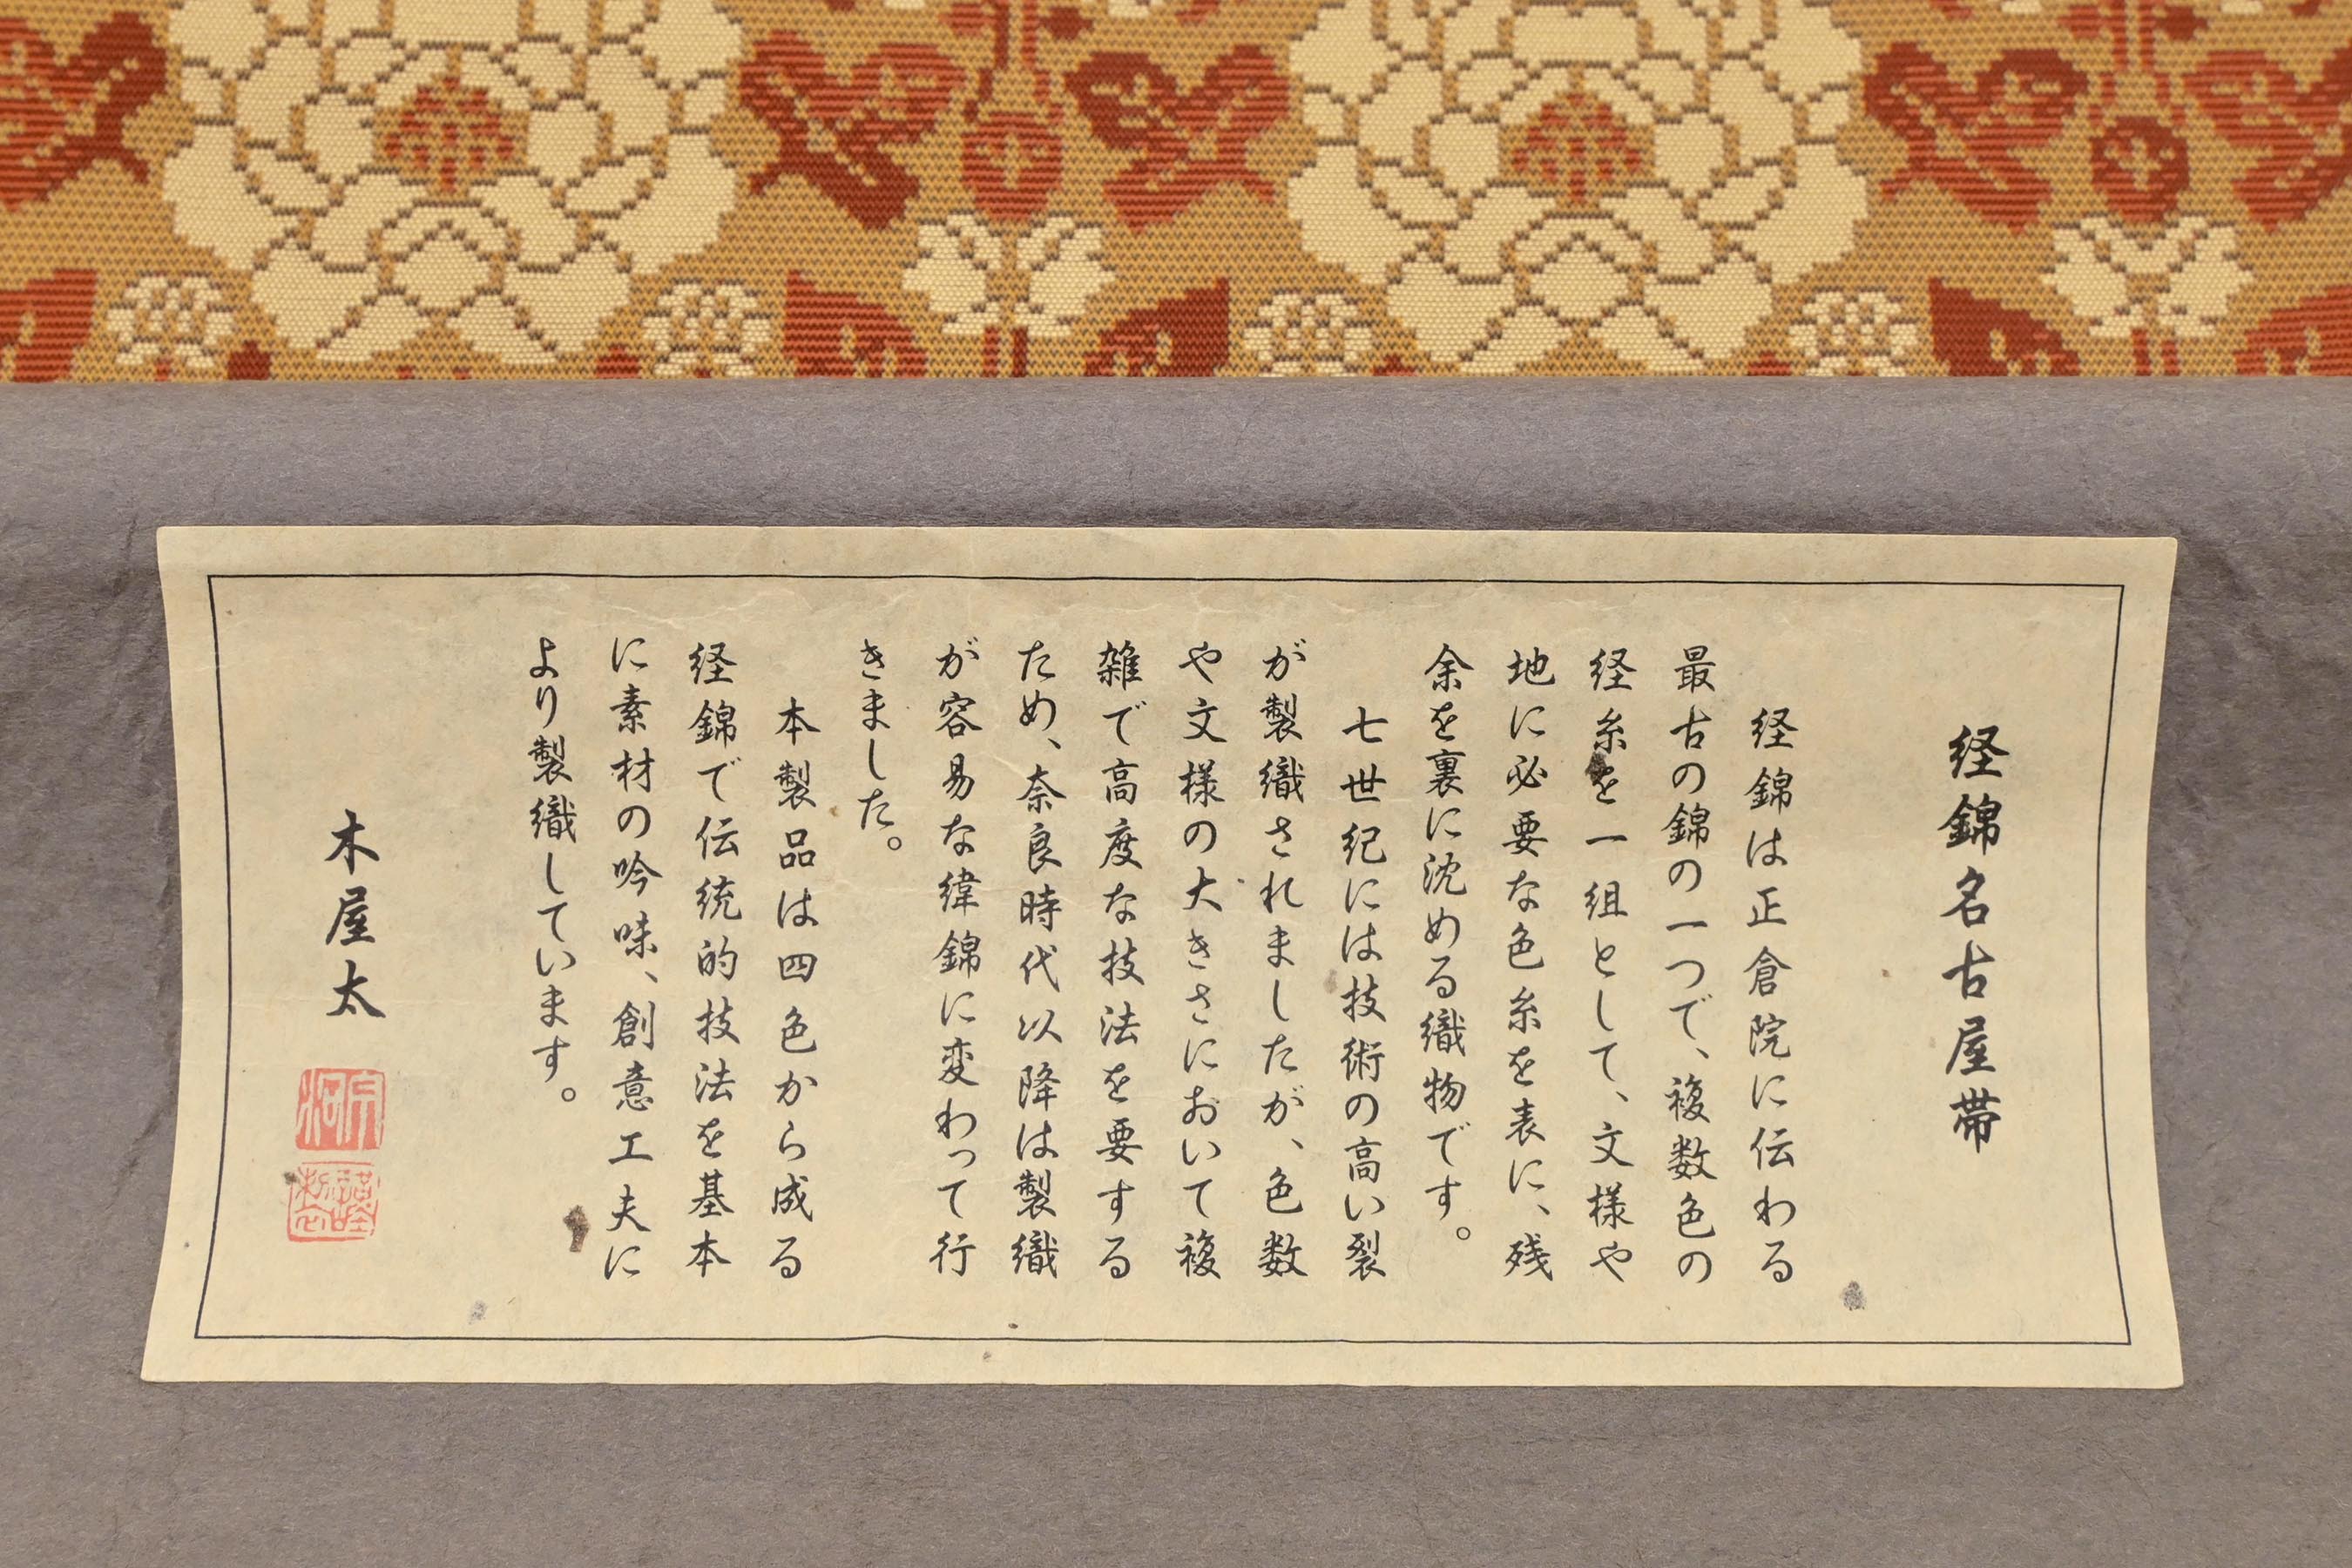 経錦名古屋帯
経錦は正倉院に伝わる
最古の錦の一つで、複数色の
経糸を一組として、文様や
地に必要な色糸を表に、残
余を裏に沈める織物です。
七世紀には技術の高い裂
が製織されましたが、色数
や文様の大きさにおいて複
雑で高度な技法を要する
ため、奈良時代以降は製織
が容易な緯錦に変わって行
きました。
本製品は四色から成る
経錦で伝統的技法を基本
に素材の吟味、創意工夫に
より製織しています。
木屋太